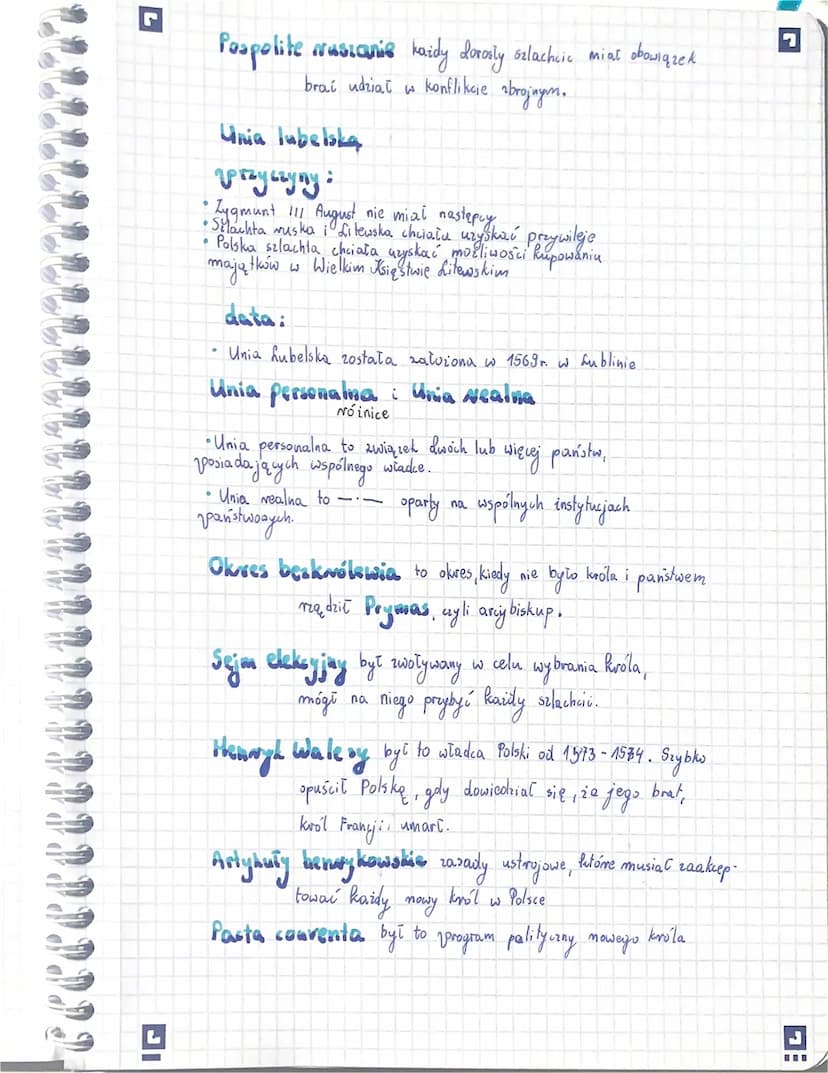 Pospolite ruszanie każdy dorosły szlachcic miał obowiązek
brać udział w konflikcie zbrojnym.
Unia lubelska
przyczyny:
• Zygmunt III August nie miał następcy
• Szlachta ruska i Litewska chciała uzyskać przywileje
• Polska szlachta chciała uzyskać możliwości kupowaniu
majątków w Wielkim Księstwie Litewskim
data:
• Unia Lubelska została założona w 1569r. w Lublinie
Unia personalna i Unia realna
różnice
• Unia personalna to związek dwóch lub więcej państw,
posiadających wspólnego władce.
• Unia realna to —·— oparty na wspólnych instytucjach
państwowych.
Okres bezkrólewia to okres, kiedy nie było króla i państwem
rządził Prymas, czyli arcybiskup.
Sejm elekcyjny był zwoływany w celu wybrania króla,
mógł na niego przybyć każdy szlachcic.
Henryk Walezy był to władca Polski od 1573-1574. Szybko
opuścił Polskę, gdy dowiedział się, że jego brat,
król Francji, umarł.
Artykuły henrykowskie zasady ustrojowe, które musiał zaakcep-
tować każdy nowy król w Polsce
Pasta conventa był to program polityczny nowego króla